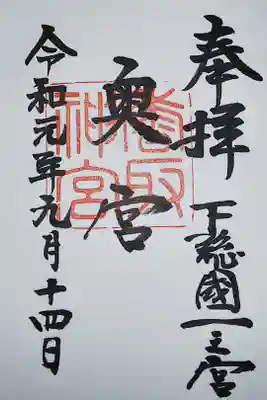 奉拝
下總國一之宮
香取神宮
奥宮
令和元年九月十四日